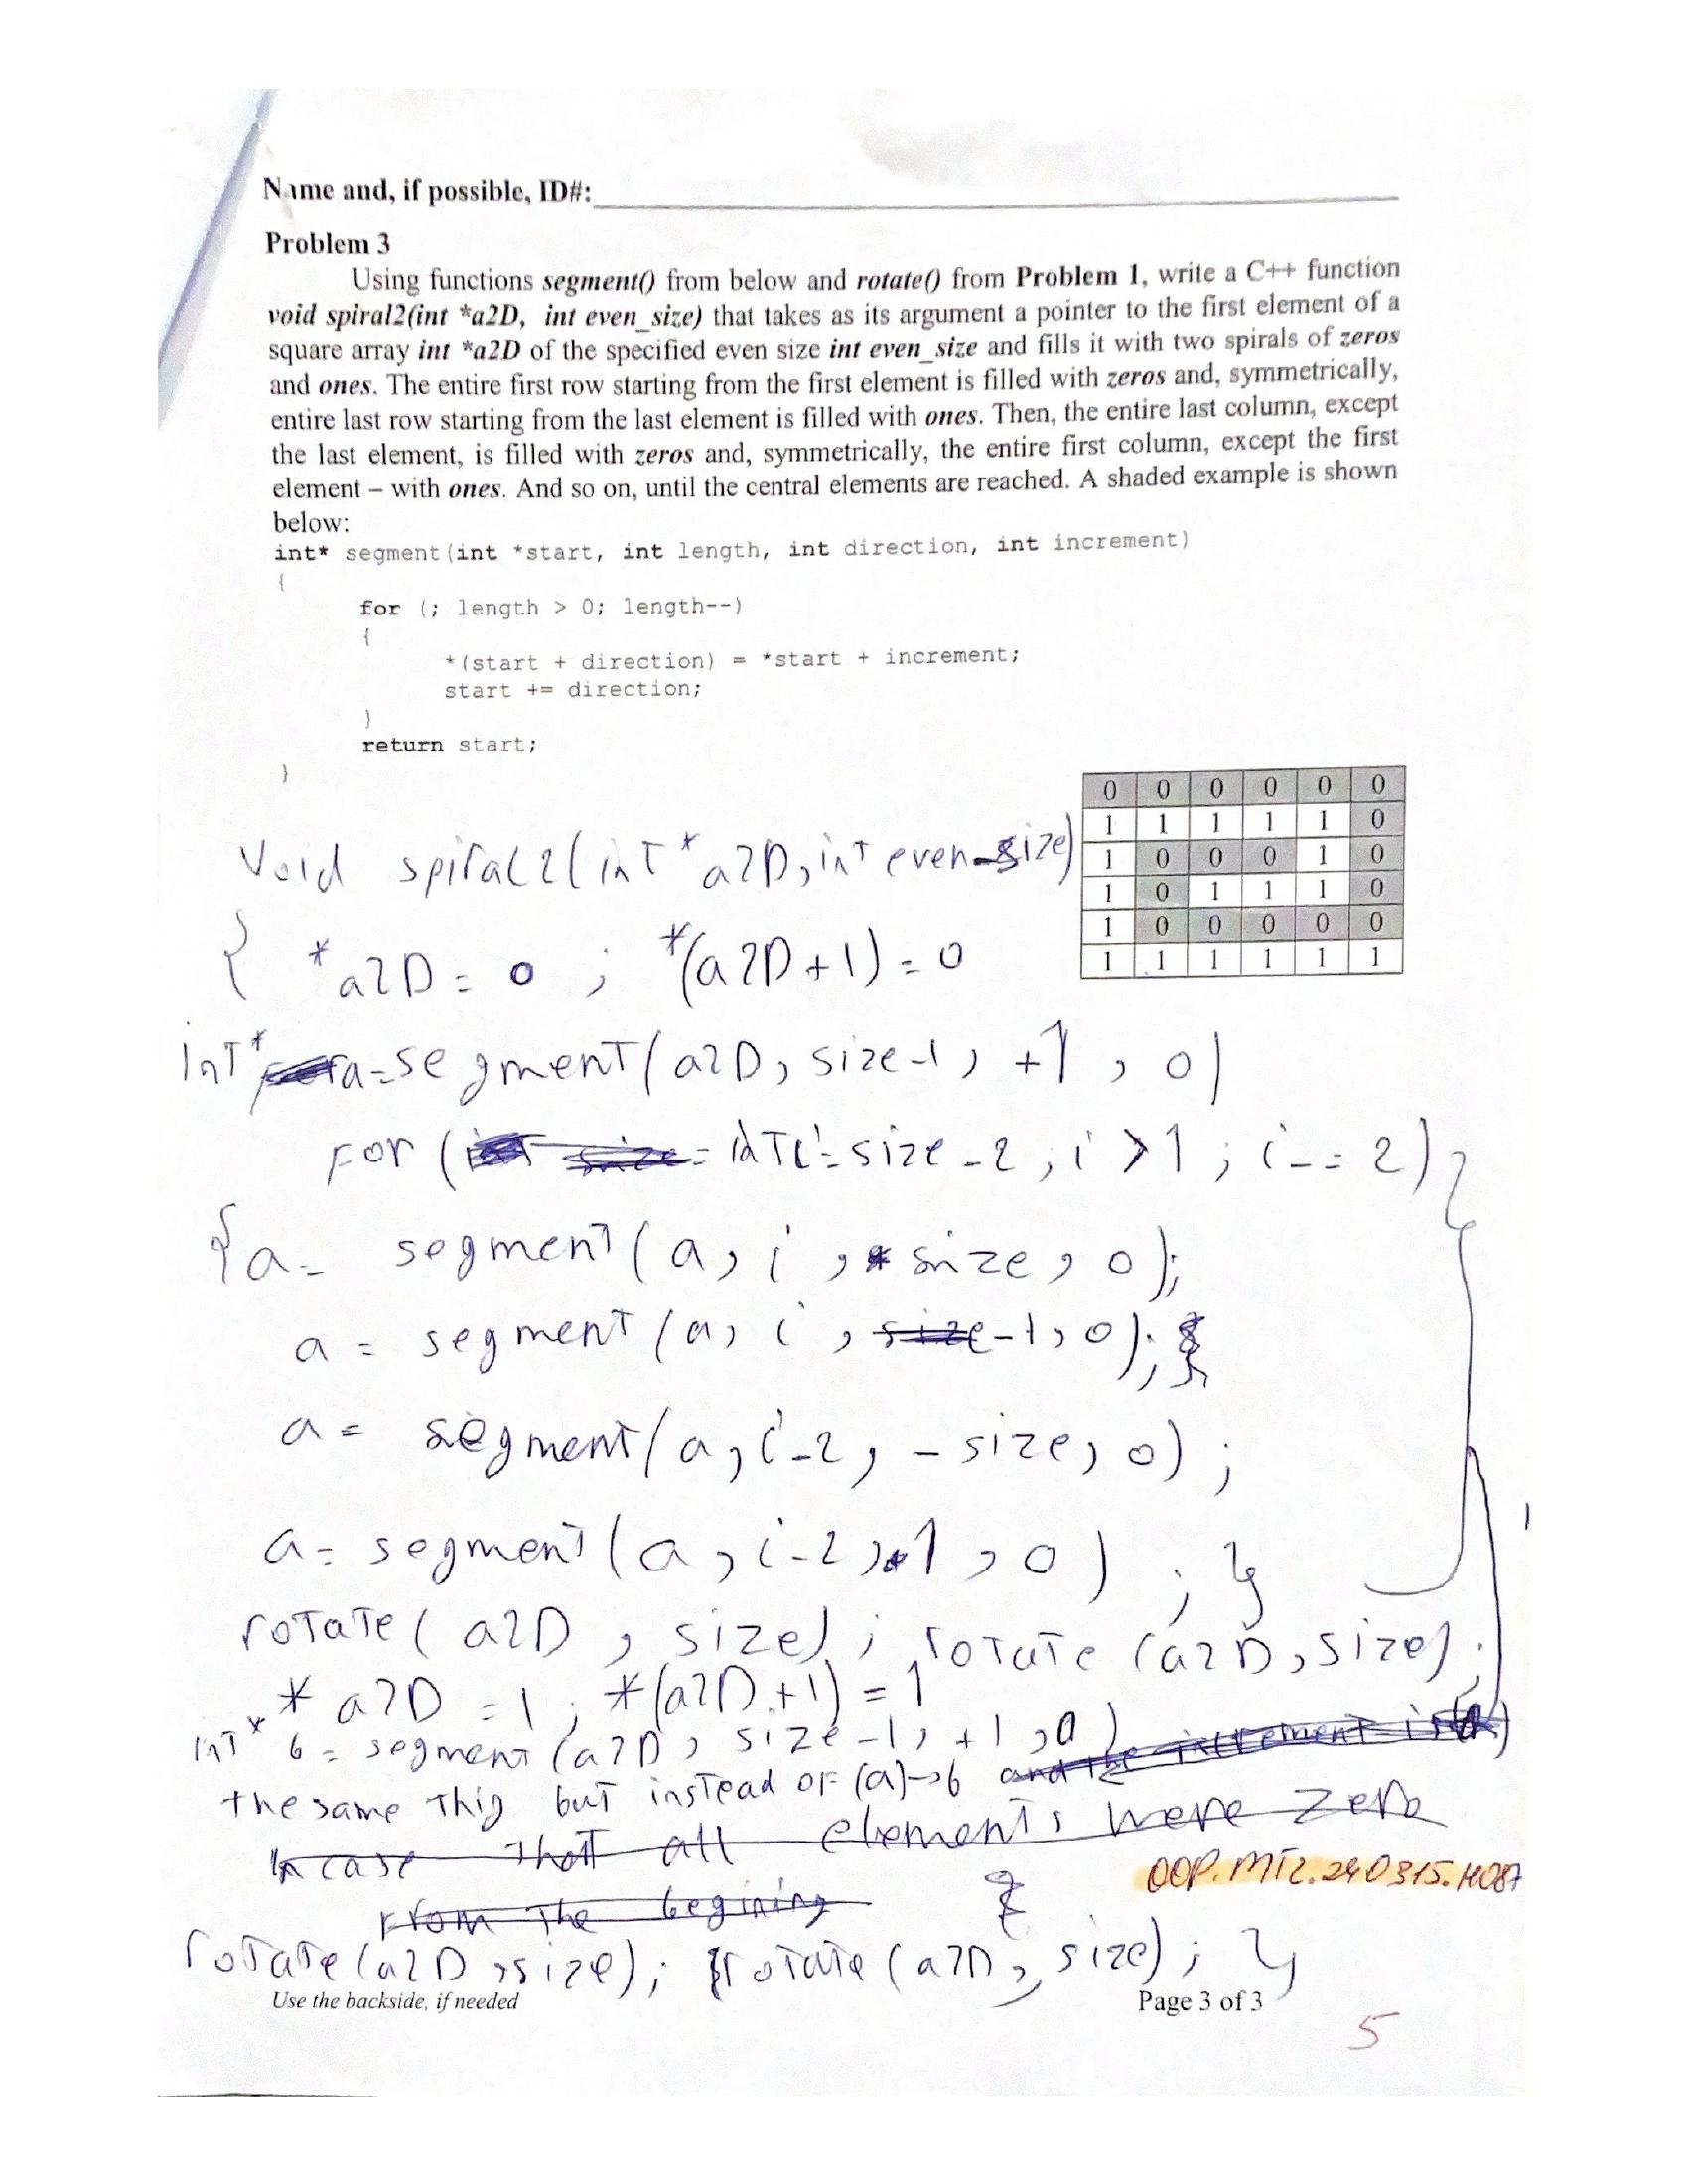 Name and, if possible, ID#:
Problem 3
Using functions segment() from below and rotate() from Problem 1, write a C++ function
void spiral2(int *a2D, int even_size) that takes as its argument a pointer to the first element of a
square array int *a2D of the specified even size int even_size and fills it with two spirals of zeros
and ones. The entire first row starting from the first element is filled with zeros and, symmetrically,
entire last row starting from the last element is filled with ones. Then, the entire last column, except
the last element, is filled with zeros and, symmetrically, the entire first column, except the first
element – with ones. And so on, until the central elements are reached. A shaded example is shown
below:
int* segment(int *start, int length, int direction, int increment)
{
for (; length > 0; length--)
{
*(start + direction) = *start + increment;
start += direction;
}
return start;
}
0 0 0 0 0 0
1 1 1 1 1 0
1 0 0 0 1 0
1 0 1 1 1 0
1 0 0 0 0 0
1 1 1 1 1 1
void spiral2(int *a2D, int even_size)
{ *a2D = 0 ; *(a2D+1) = 0
int* a=segment(a2D, size-1, +1, 0)
For (int i=size-2; i>1; i-=2)
{a= segment(a, i, size, 0);
a = segment(a, i, -1, 0);
a = segment(a, i-2, -size, 0);
a= segment(a, i-2, 1, 0) ; }
rotate(a2D, size); rotate(a2D, size);
*a2D =1; *(a2D+1) = 1
int* b = segment(a2D, size-1, +1, 0)
the same thig but instead of (a)->b
In case that all elements were zero
from the begining
OOP.MT2.240315.K087
rotate(a2D, size); rotate(a2D, size); }
Use the backside, if needed
Page 3 of 3
5